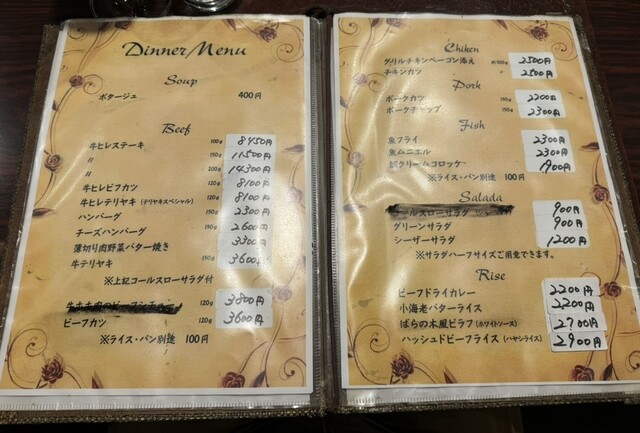 Dinner Menu
Soup
ポタージュ 400円
Beef
牛ヒレステーキ 100g 8450円
〃 150g 11500円
〃 200g 14300円
牛ヒレビフカツ 120g 8100円
牛ヒレテリヤキ (テリヤキスペシャル) 120g 8100円
ハンバーグ 150g 2300円
チーズハンバーグ 150g 2600円
薄切り肉野菜バター焼き 3300円
牛テリヤキ 150g 3600円
※上記コールスローサラダ付
120g 3800円
ビーフカツ 120g 3600円
※ライス・パン別途 100円
Chiken
グリルチキンベーコン添え 2500円
チキンカツ 2500円
Pork
ポークカツ 150g 2200円
ポークチャップ 150g 2300円
Fish
魚フライ 2300円
魚ムニエル 2300円
クリームコロッケ 1900円
※ライス・パン別途 100円
Salada
コールスローサラダ 900円
グリーンサラダ 900円
シーザーサラダ 1200円
※サラダハーフサイズご用意できます。
Rise
ビーフドライカレー 2200円
小海老バターライス 2200円
ばらの木風ピラフ (ホワイトソース) 2700円
ハッシュドビーフライス (ハヤシライス) 2900円